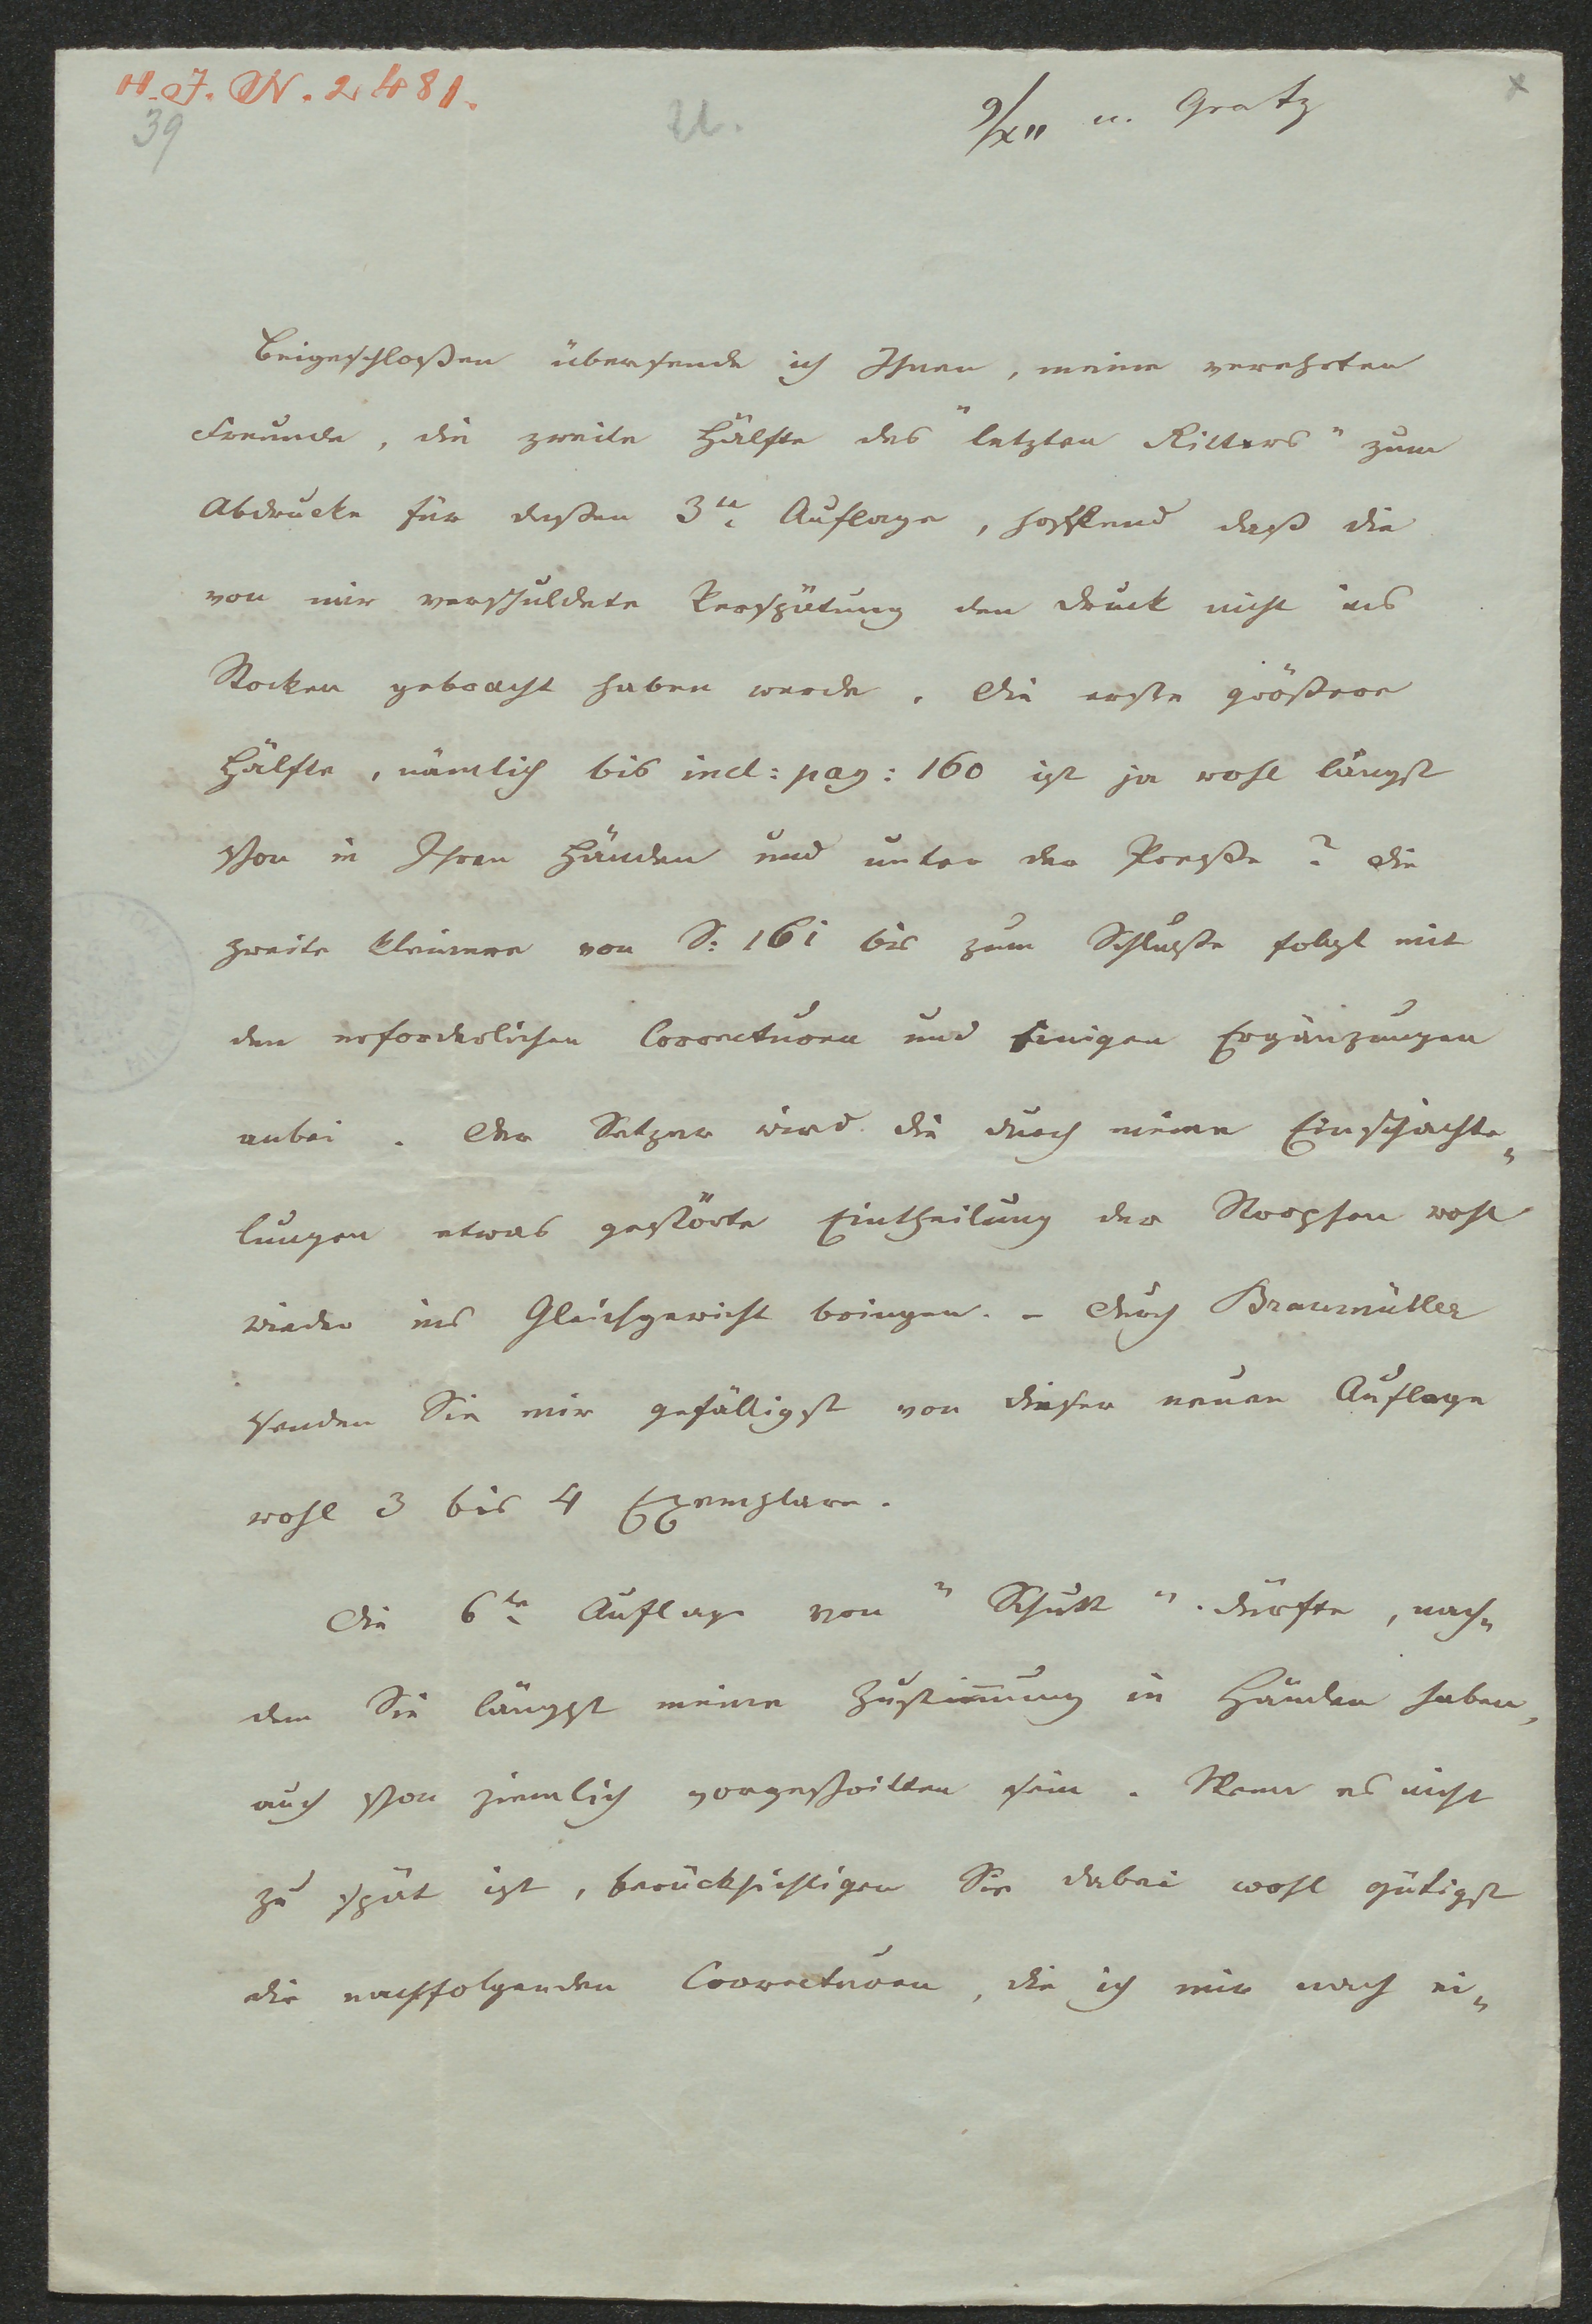 H. I. N. 2481.
39
U.
9/XII u. Gratz
Beigeschloßen übersende ich Ihnen, meine verehrten
Freunde, die zweite Hälfte des "letzten Ritters" zum
Abdrucke für deßen 3te Auflage, hoffend daß die
von mir verschuldete Verspätung den Druck nicht ins
Stocken gebracht haben werde. Die erste größere
Hälfte, nämlich bis incl: pag: 160 ist ja wohl längst
schon in Ihren Händen und unter der Preße? Die
zweite kleinere von S: 161 bis zum Schluße folgt mit
den erforderlichen Correcturen und einigen Ergänzungen
anbei. Der Setzer wird die durch meine Einschachte„
lungen etwas gestörte Eintheilung der Strophen wohl
wieder ins Gleichgewicht bringen. – Durch Braumüller
senden Sie mir gefälligst von dieser neuen Auflage
wohl 3 bis 4 Exemplare.
Die 6te Auflage von "Schutt" dürfte, nach„
dem Sie längst meine Zustimmung in Händen haben,
auch schon ziemlich vorgeschritten sein. Wenn es nicht
zu spät ist, berücksichtigen Sie dabei wohl gütigst
die nachfolgenden Correcturen, die ich mir nach ei„